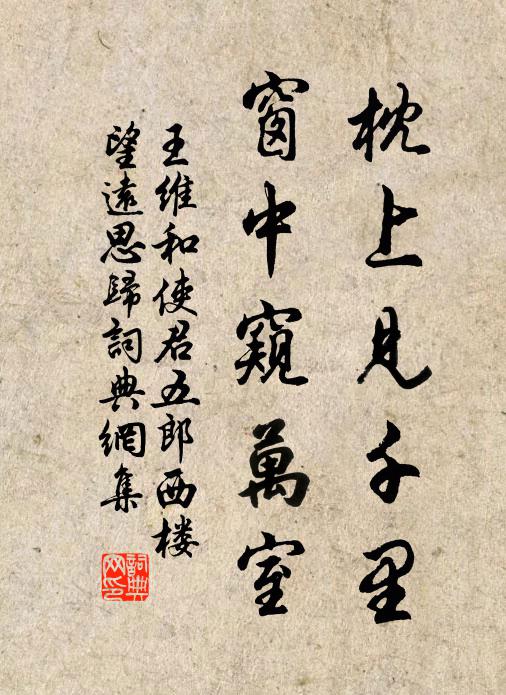 枕上見千里
窗中窺萬室
王維和使君五郎西楼
望遠思歸詞典網集
詞典
网印